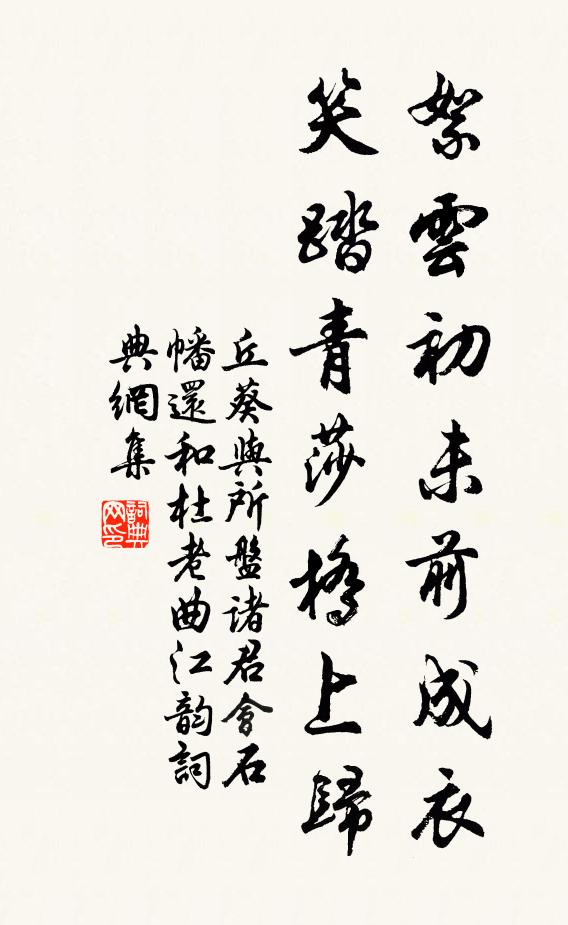 絮雲初未前成衣
笑踏青莎橋上歸
丘葵與所盤諸君會石
幡還和杜老曲江韵詞
典網集
詞典网印